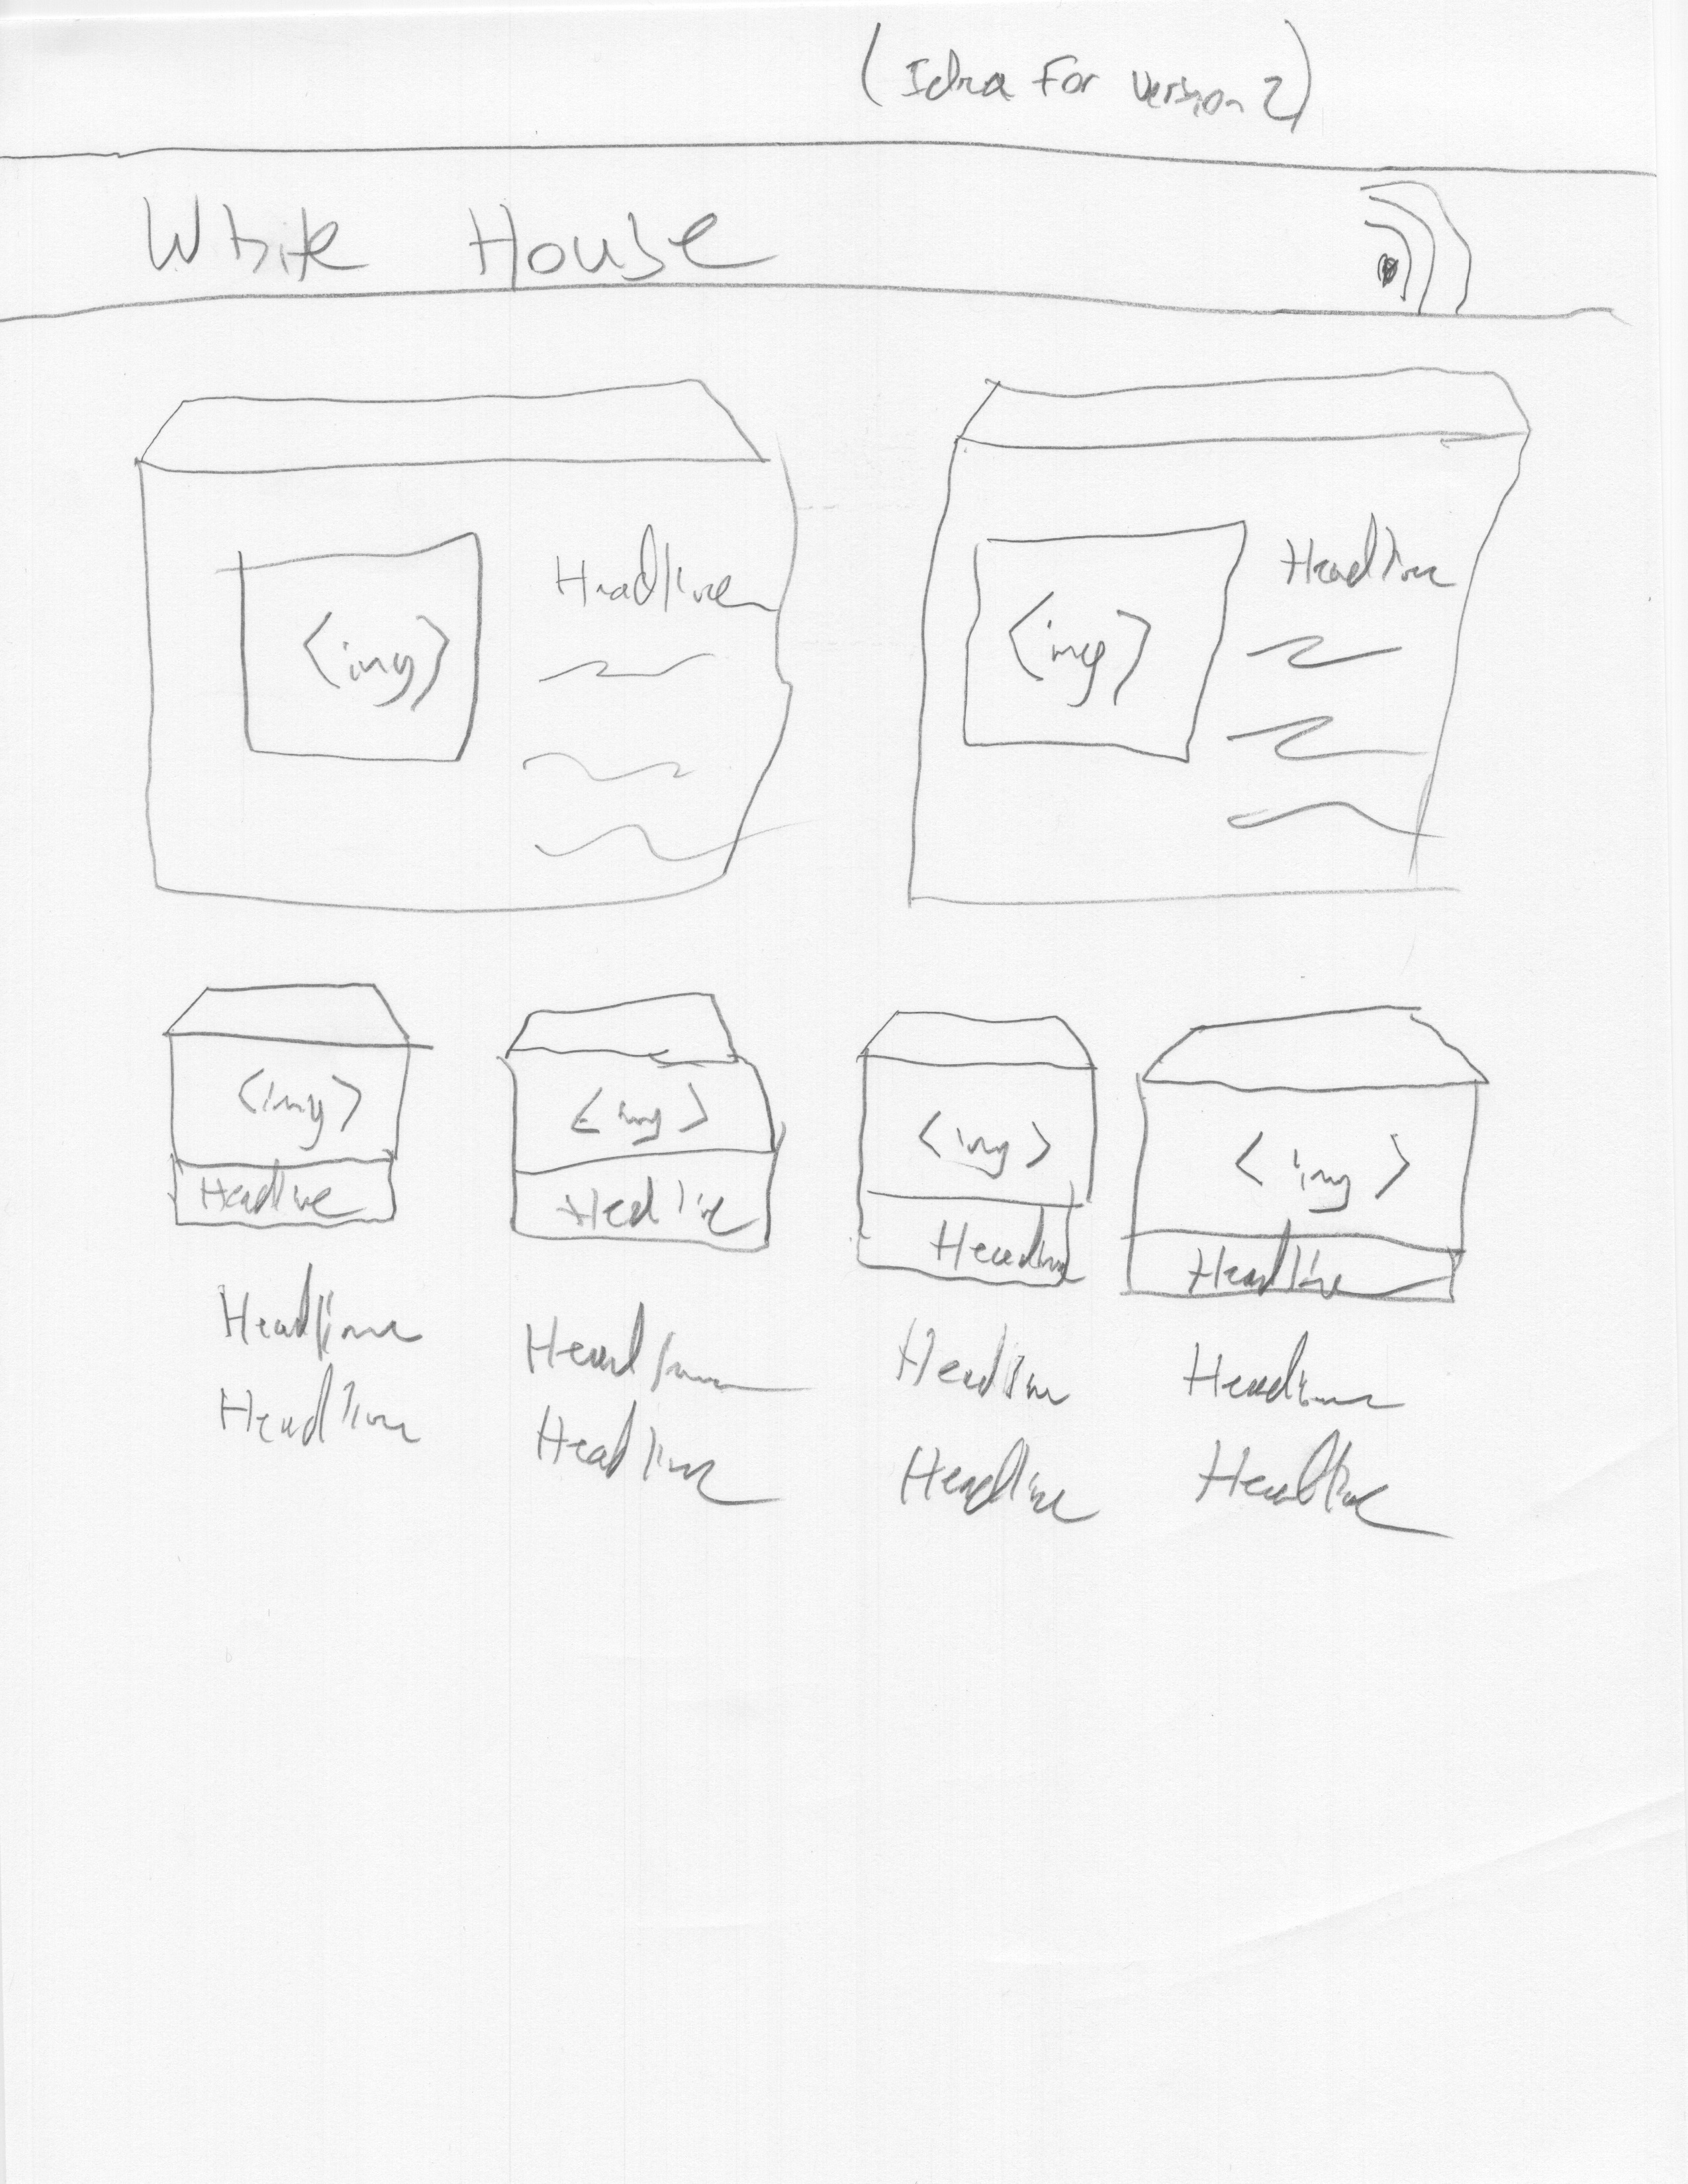 (Idea For Version 2)
White House
Headline
Headline
<img>
<img>
<img>
<img>
<img>
<img>
Headline
Headline
Headline
Headline
Headline
Headline
Headline
Headline
Headline
Headline
Headline
Headline